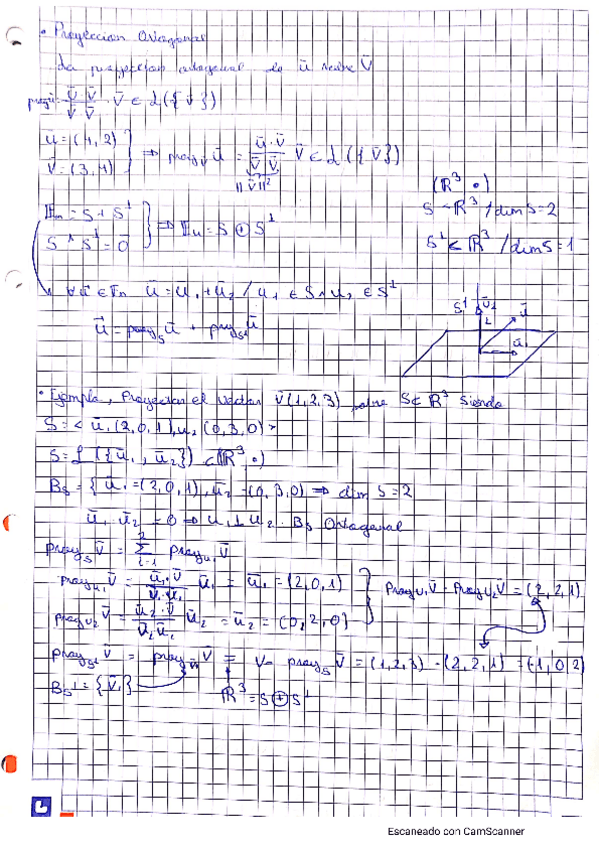 • Proyeccion Ortogonal
La proyeccion ortogonal de ū sobre V̄
proy ū = ū · V̄ / V̄ V̄ · V̄ ∈ L({v̄})
ū = (1, 2)
V̄ = (3, 4) } ⇒ proy_v̄ ū = ū · V̄ / V̄ V̄ V̄ ∈ L({V̄})
||V̄||²
(R³ •)
S < R³ / dim S = 2
S⊥ < R³ / dim S = 1
En = S + S⊥
S ∧ S⊥ = 0̄ } ⇒ En = S ⊕ S⊥
∀ ū ∈ En ū = u₁ + u₂ / u₁ ∈ S ∧ u₂ ∈ S⊥
ū = proy_s ū + proy_s⊥ ū
S⊥ ū₂ ū
ū₁
• Ejemplo, Proyectar el vector v̄ (1, 2, 3) sobre S ⊂ R³ siendo
S = < ū₁ (2, 0, 1), u₂ (0, 3, 0) >
S = L ({ū₁, ū₂}) ⊂ (R³, •)
Bs = { ū₁ = (2, 0, 1), ū₂ = (0, 3, 0) ⇒ dim S = 2
ū₁ · ū₂ = 0 ⇒ u₁ ⊥ u₂. Bs Ortogonal
proy_s v̄ = Σ proy_ui v̄
proy_u₁ v̄ = ū₁ · v̄ / ū₁ · ū₁ ū₁ = ū₁ = (2, 0, 1)
proy_u₂ v̄ = ū₂ · v̄ / ū₂ ū₂ ū₂ = ū₂ = (0, 2, 0) } Proy_u₁ v̄ - Proy_u₂ v̄ = (2, 2, 1)
proy_s⊥ v̄ = proy v̄ = v - proy_s v̄ = (1, 2, 3) - (2, 2, 1) = (-1, 0, 2)
Bs⊥ = {v̄₁} R³ = S ⊕ S⊥
Escaneado con CamScanner